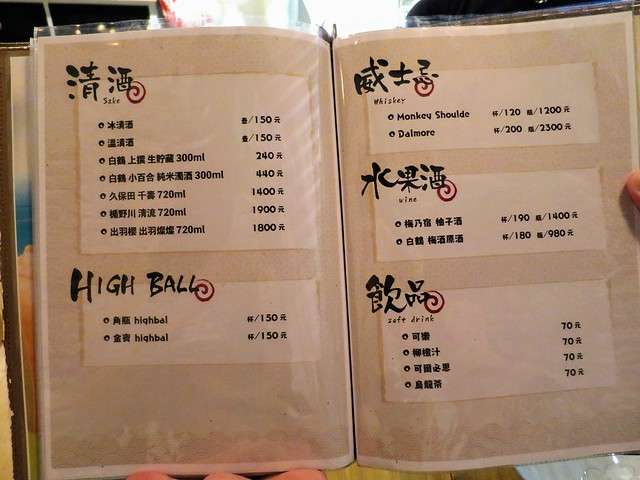 清酒
Sake
冰清酒 壺/150元
溫清酒 壺/150元
白鶴 上撰 生貯藏 300ml 240元
白鶴 小百合 純米濁酒 300ml 440元
久保田 千壽 720ml 1400元
楯野川 清流 720ml 1900元
出羽櫻 出羽燦燦 720ml 1800元
HIGH BALL
角瓶 highbal 杯/150元
金賓 highbal 杯/150元
威士忌
Whiskey
Monkey Shoulde 杯/120 瓶/1200元
Dalmore 杯/200 瓶/2300元
水果酒
wine
梅乃宿 柚子酒 杯/190 瓶/1400元
白鶴 梅酒原酒 杯/180 瓶/980元
飲品
soft drink
可樂 70元
柳橙汁 70元
可爾必思 70元
烏龍茶 70元